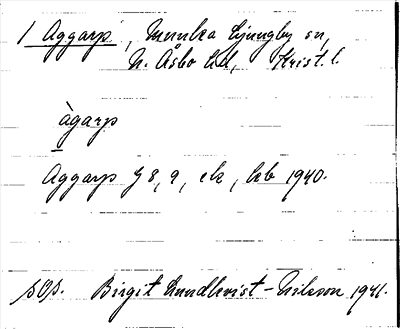 1 Aggarp, Munka Ljungby sn,
N. Åsbo hd, Krist. l.
àgarp
Aggarp J 8, 9, ek, kb 1940.
sOp. Birgit Lundkvist-Nilsson 1941.